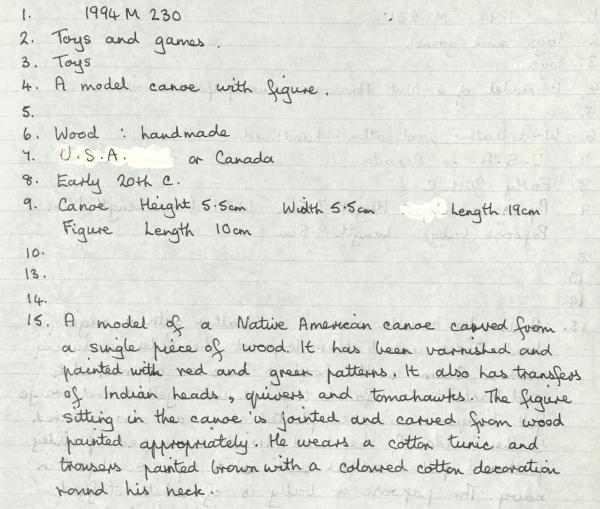 1. 1994 M 230
2. Toys and games.
3. Toys
4. A model canoe with figure.
5.
6. Wood : handmade
7. U.S.A. or Canada
8. Early 20th C.
9. Canoe Height 5.5cm Width 5.5cm Length 19cm
Figure Length 10cm
10.
13.
14.
15. A model of a Native American canoe carved from
a single piece of wood. It has been varnished and
painted with red and green patterns. It also has transfers
of Indian heads, quivers and tomahawks. The figure
sitting in the canoe is jointed and carved from wood
painted appropriately. He wears a cotton tunic and
trousers painted brown with a coloured cotton decoration
round his neck.